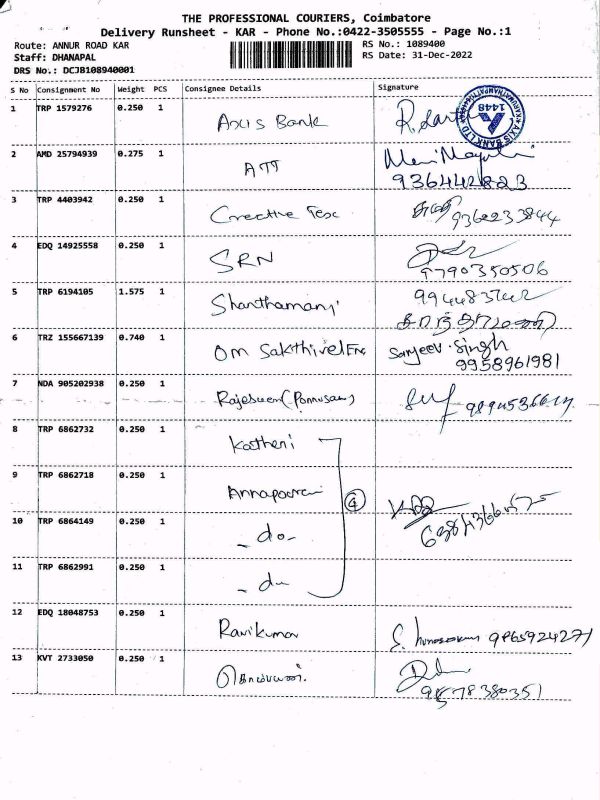 THE PROFESSIONAL COURIERS, Coimbatore
Delivery Runsheet - KAR - Phone No.:0422-3505555 - Page No.:1
Route: ANNUR ROAD KAR
RS No.: 1089400
Staff: DHANAPAL
RS Date: 31-Dec-2022
DRS No.: DCJB108940001
S No Consignment No Weight PCS Consignee Details Signature
1 TRP 1579276 0.250 1 Axis Bank
AXIS BANK LTD
1448
2 AMD 25794939 0.275 1 ATT
9364428 23
3 TRP 4403942 0.250 1 Creative Tex 9362233844
4 EDQ 14925558 0.250 1 SRN
9790350506
5 TRP 6194105 1.575 1 Shanthamani
6 TRZ 155667139 0.740 1 Om Sakthivel Eng Sanjeev. Singh
9958961981
7 NDA 905202938 0.250 1
8 TRP 6862732 0.250 1 Kastheri
9 TRP 6862718 0.250 1 Annapoorani
4
10 TRP 6864149 0.250 1 - do -
11 TRP 6862991 0.250 1 - do
12 EDQ 18048753 0.250 1 Ravikumar 9865924271
13 KVT 2733050 0.250 1
9578380351